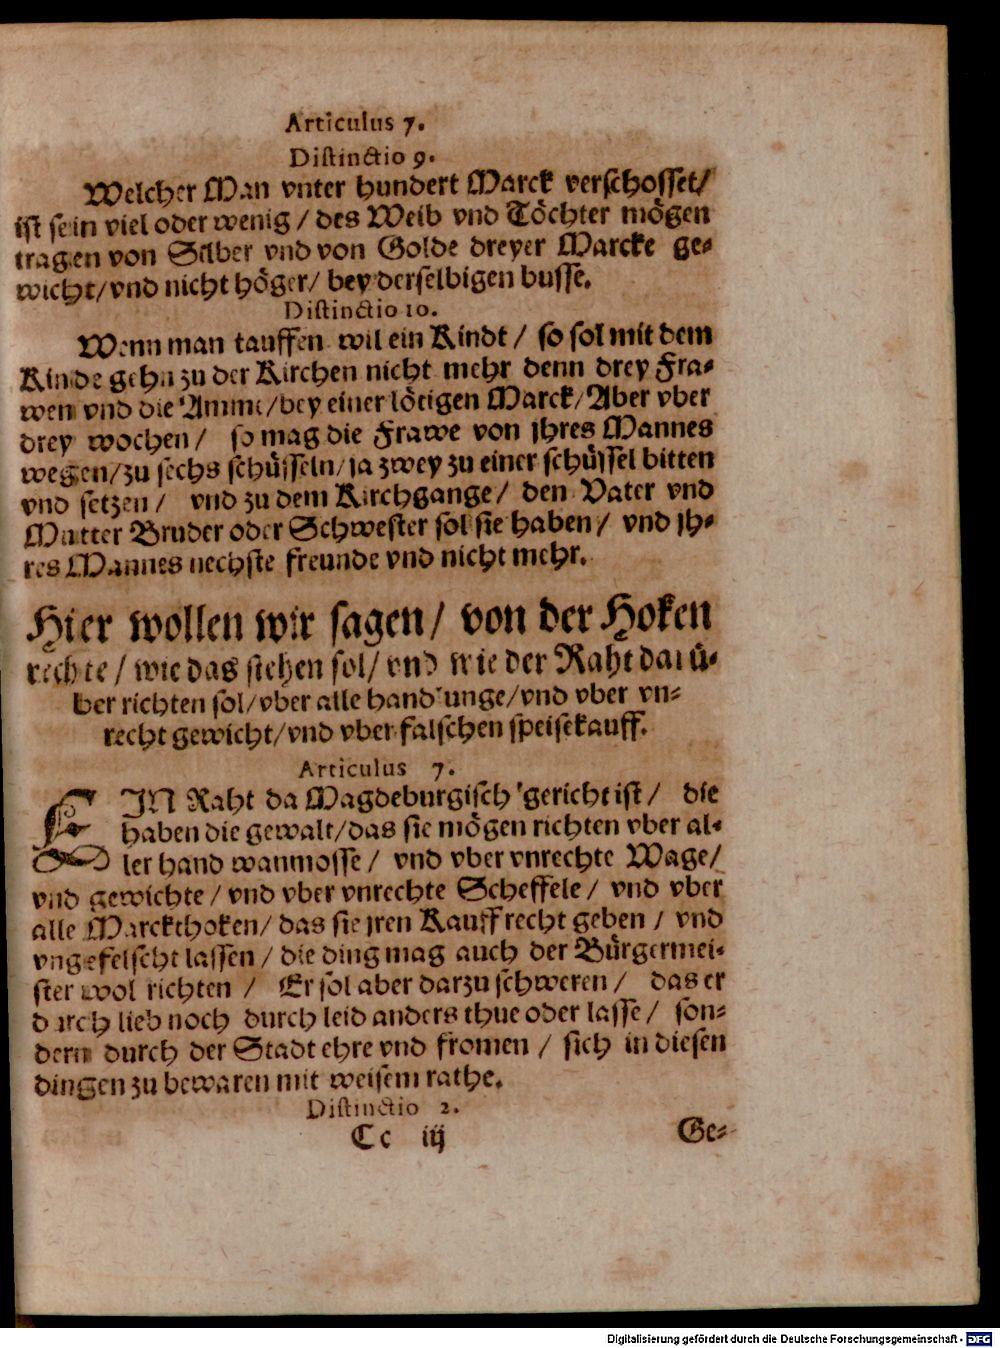 Articulus 7.
Distinctio 9.
Welcher Man vnter hundert Marck verschosset/
ist sein viel oder wenig / des Weib vnd Töchter mögen
tragen von Silber vnd von Golde dreyer Marcke ge-
wicht/vnd nicht höger/ bey derselbigen busse.
Distinctio 10.
Wenn man tauffen wil ein Kindt / so sol mit dem
Kinde gehn zu der Kirchen nicht mehr denn drey Fra-
wen vnd die Amme/bey einer lötigen Marck/Aber vber
drey wochen / so mag die Frawe von jhres Mannes
wegen/zu sechs schüsseln/ja zwey zu einer schüssel bitten
vnd setzen / vnd zu dem Kirchgange / den Vater vnd
Mutter Bruder oder Schwester sol sie haben / vnd jh-
res Mannes nechste freunde vnd nicht mehr.
Hier wollen wir sagen / von der Hoken
rechte / wie das stehen sol/ vnd wie der Raht darü-
ber richten sol/vber alle handlunge/vnd vber vn-
recht gewicht/vnd vber falschen speisekauff.
Articulus 7.
EIN Raht da Magdeburgisch gericht ist / die
haben die gewalt/das sie mögen richten vber al-
ler hand wanmosse / vnd vber vnrechte Wage/
vnd gewichte / vnd vber vnrechte Scheffele / vnd vber
alle Marckthoken/ das sie jren Kauff recht geben / vnd
vngefelscht lassen / die ding mag auch der Bürgermei-
ster wol richten / Er sol aber darzu schweren / das er
durch lieb noch durch leid anders thue oder lasse / son-
dern durch der Stadt ehre vnd fromen / sich in diesen
dingen zu bewaren mit weisem rathe.
Distinctio 2.
Cc iij Ge-
Digitalisierung gefördert durch die Deutsche Forschungsgemeinschaft - DFG